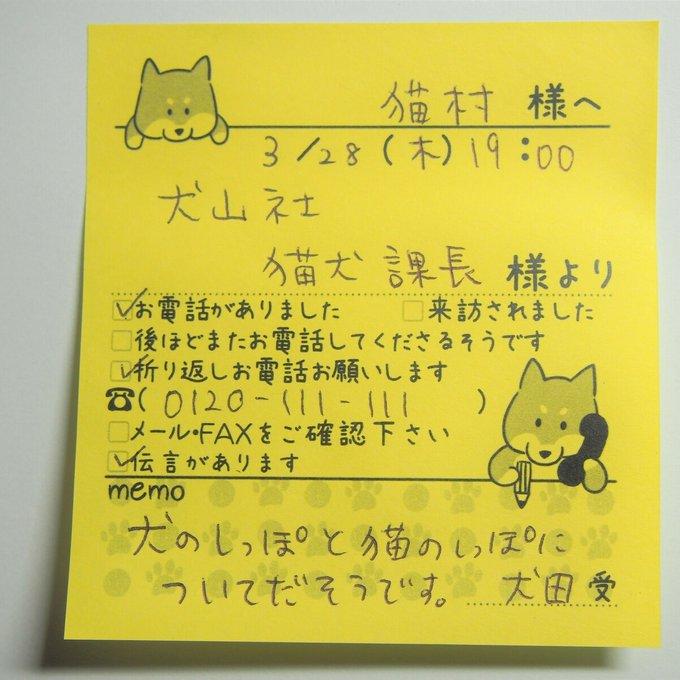 猫村 様へ
3/28(木)19:00
犬山社
猫犬 課長 様より
お電話がありました □来訪されました
□後ほどまたお電話してくださるそうです
折り返しお電話お願いします
☎(0120-111-111)
□メール・FAXをご確認下さい
伝言があります
memo
犬のしっぽと猫のしっぽに
ついてだそうです。 犬田 受